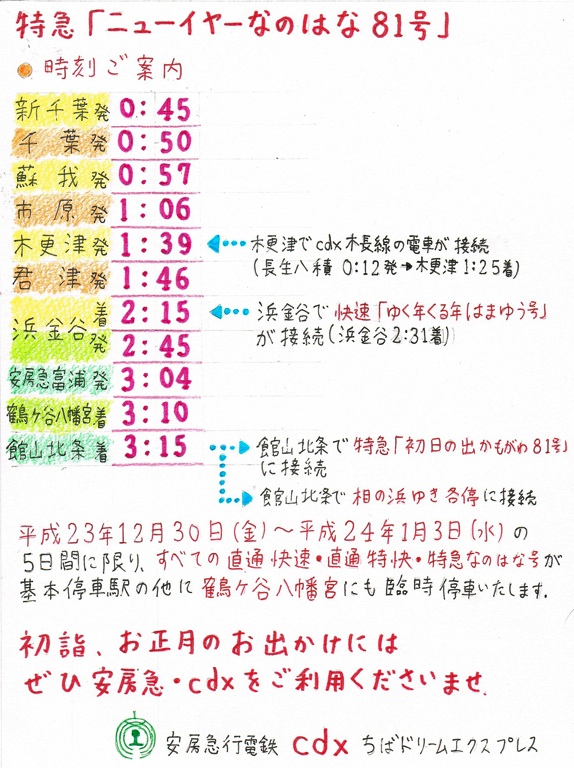 特急「ニューイヤーなのはな81号」
時刻ご案内
新千葉発 0:45
千葉発 0:50
蘇我発 0:57
市原発 1:06
木更津発 1:39
木更津でcdx木長線の電車が接続
(長生八積 0:12発→木更津1:25着)
君津発 1:46
浜金谷着 2:15
発 2:45
浜金谷で快速「ゆく年くる年はまゆう号」
が接続(浜金谷2:31着)
安房急富浦発 3:04
鶴ケ谷八幡宮着 3:10
館山北条着 3:15
館山北条で特急「初日の出かもがわ81号」
に接続
館山北条で相の浜ゆき各停に接続
平成23年12月30日(金)〜平成24年1月3日(水)の
5日間に限り、すべての直通快速・直通特快・特急なのはな号が
基本停車駅の他に鶴ケ谷八幡宮にも臨時停車いたします.
初詣、お正月のお出かけには
ぜひ安房急・cdxをご利用くださいませ.
安房急行電鉄 cdx ちばドリームエクスプレス